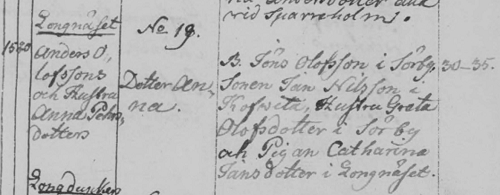 vid Sparreholm.
Longnäset
No. 19.
1580
Anders O,
lofssons
och Hustru
Anna Pehrs,
dotters
Dotter An,
na.
B. Jöns Olofsson i Sörby, 30-35.
Sonen Jan Nilsson i
Hustru Greta
Olofsdotter i Sörby
och Pigan Catharina
Jansdotter i Longnäset.